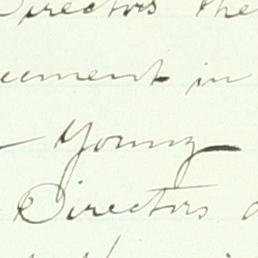 Directors the
eement in
Young
Directors